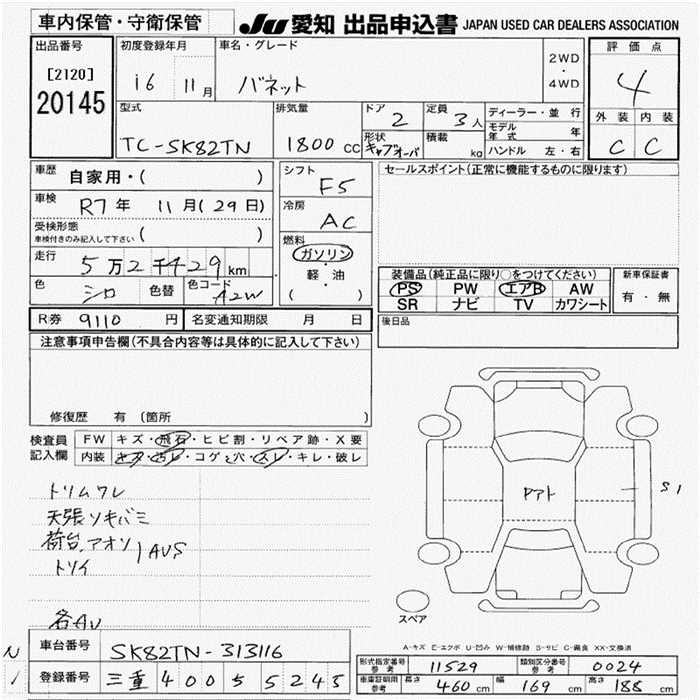 車内保管・守衛保管
JU 愛知 出品申込書 JAPAN USED CAR DEALERS ASSOCIATION
出品番号
[2120]
20145
初度登録年月
16 11月
車名・グレード
バネット
2WD
・
4WD
評価点
4
外装 内装
C C
型式
TC-SK82TN
排気量
1800 CC
ドア
2
定員
3人
形状
キャブオーバ
積載
kg
ディーラー・並 行
モデル年式 年
ハンドル 左・右
車歴
自家用・( )
車検
R7年 11月(29日)
受検形態
車検付きのみ記入して下さい ( )
走行
5万2千429km
色
シロ
色替
色コード
A2W
シフト
F5
冷房
AC
燃料
ガソリン
・
軽 油
( )
セールスポイント(正常に機能するものに限ります)
装備品(純正品に限り○をつけてください)
PS PW エアB AW
SR ナビ TV カワシート
新車保証書
有・無
R券 9110 円 名変通知期限 月 日
後日品
注意事項申告欄(不具合内容等は具体的に記入して下さい)
修復歴 有(箇所 )
検査員記入欄
FW キズ・飛石・ヒビ割・リペア跡・X要
内装 キズ・汚レ・コゲと穴・スレ・キレ・破レ
トリムワレ
天張ソキバミ
荷台.アオソ
トソイ
AUS
各AU
Pアト
S1
スペア
A-キズ E-エクボ U-凹み W-補修跡 S-サビ C-腐食 XX-交換済
N
1
車台番号 SK82TN-313116
登録番号 三重 400 5 5243
形式指定番号 参考 11529 類別区分番号 参考 0024
車庫証明用 参考 長さ 460cm 幅 169cm 高さ 188cm